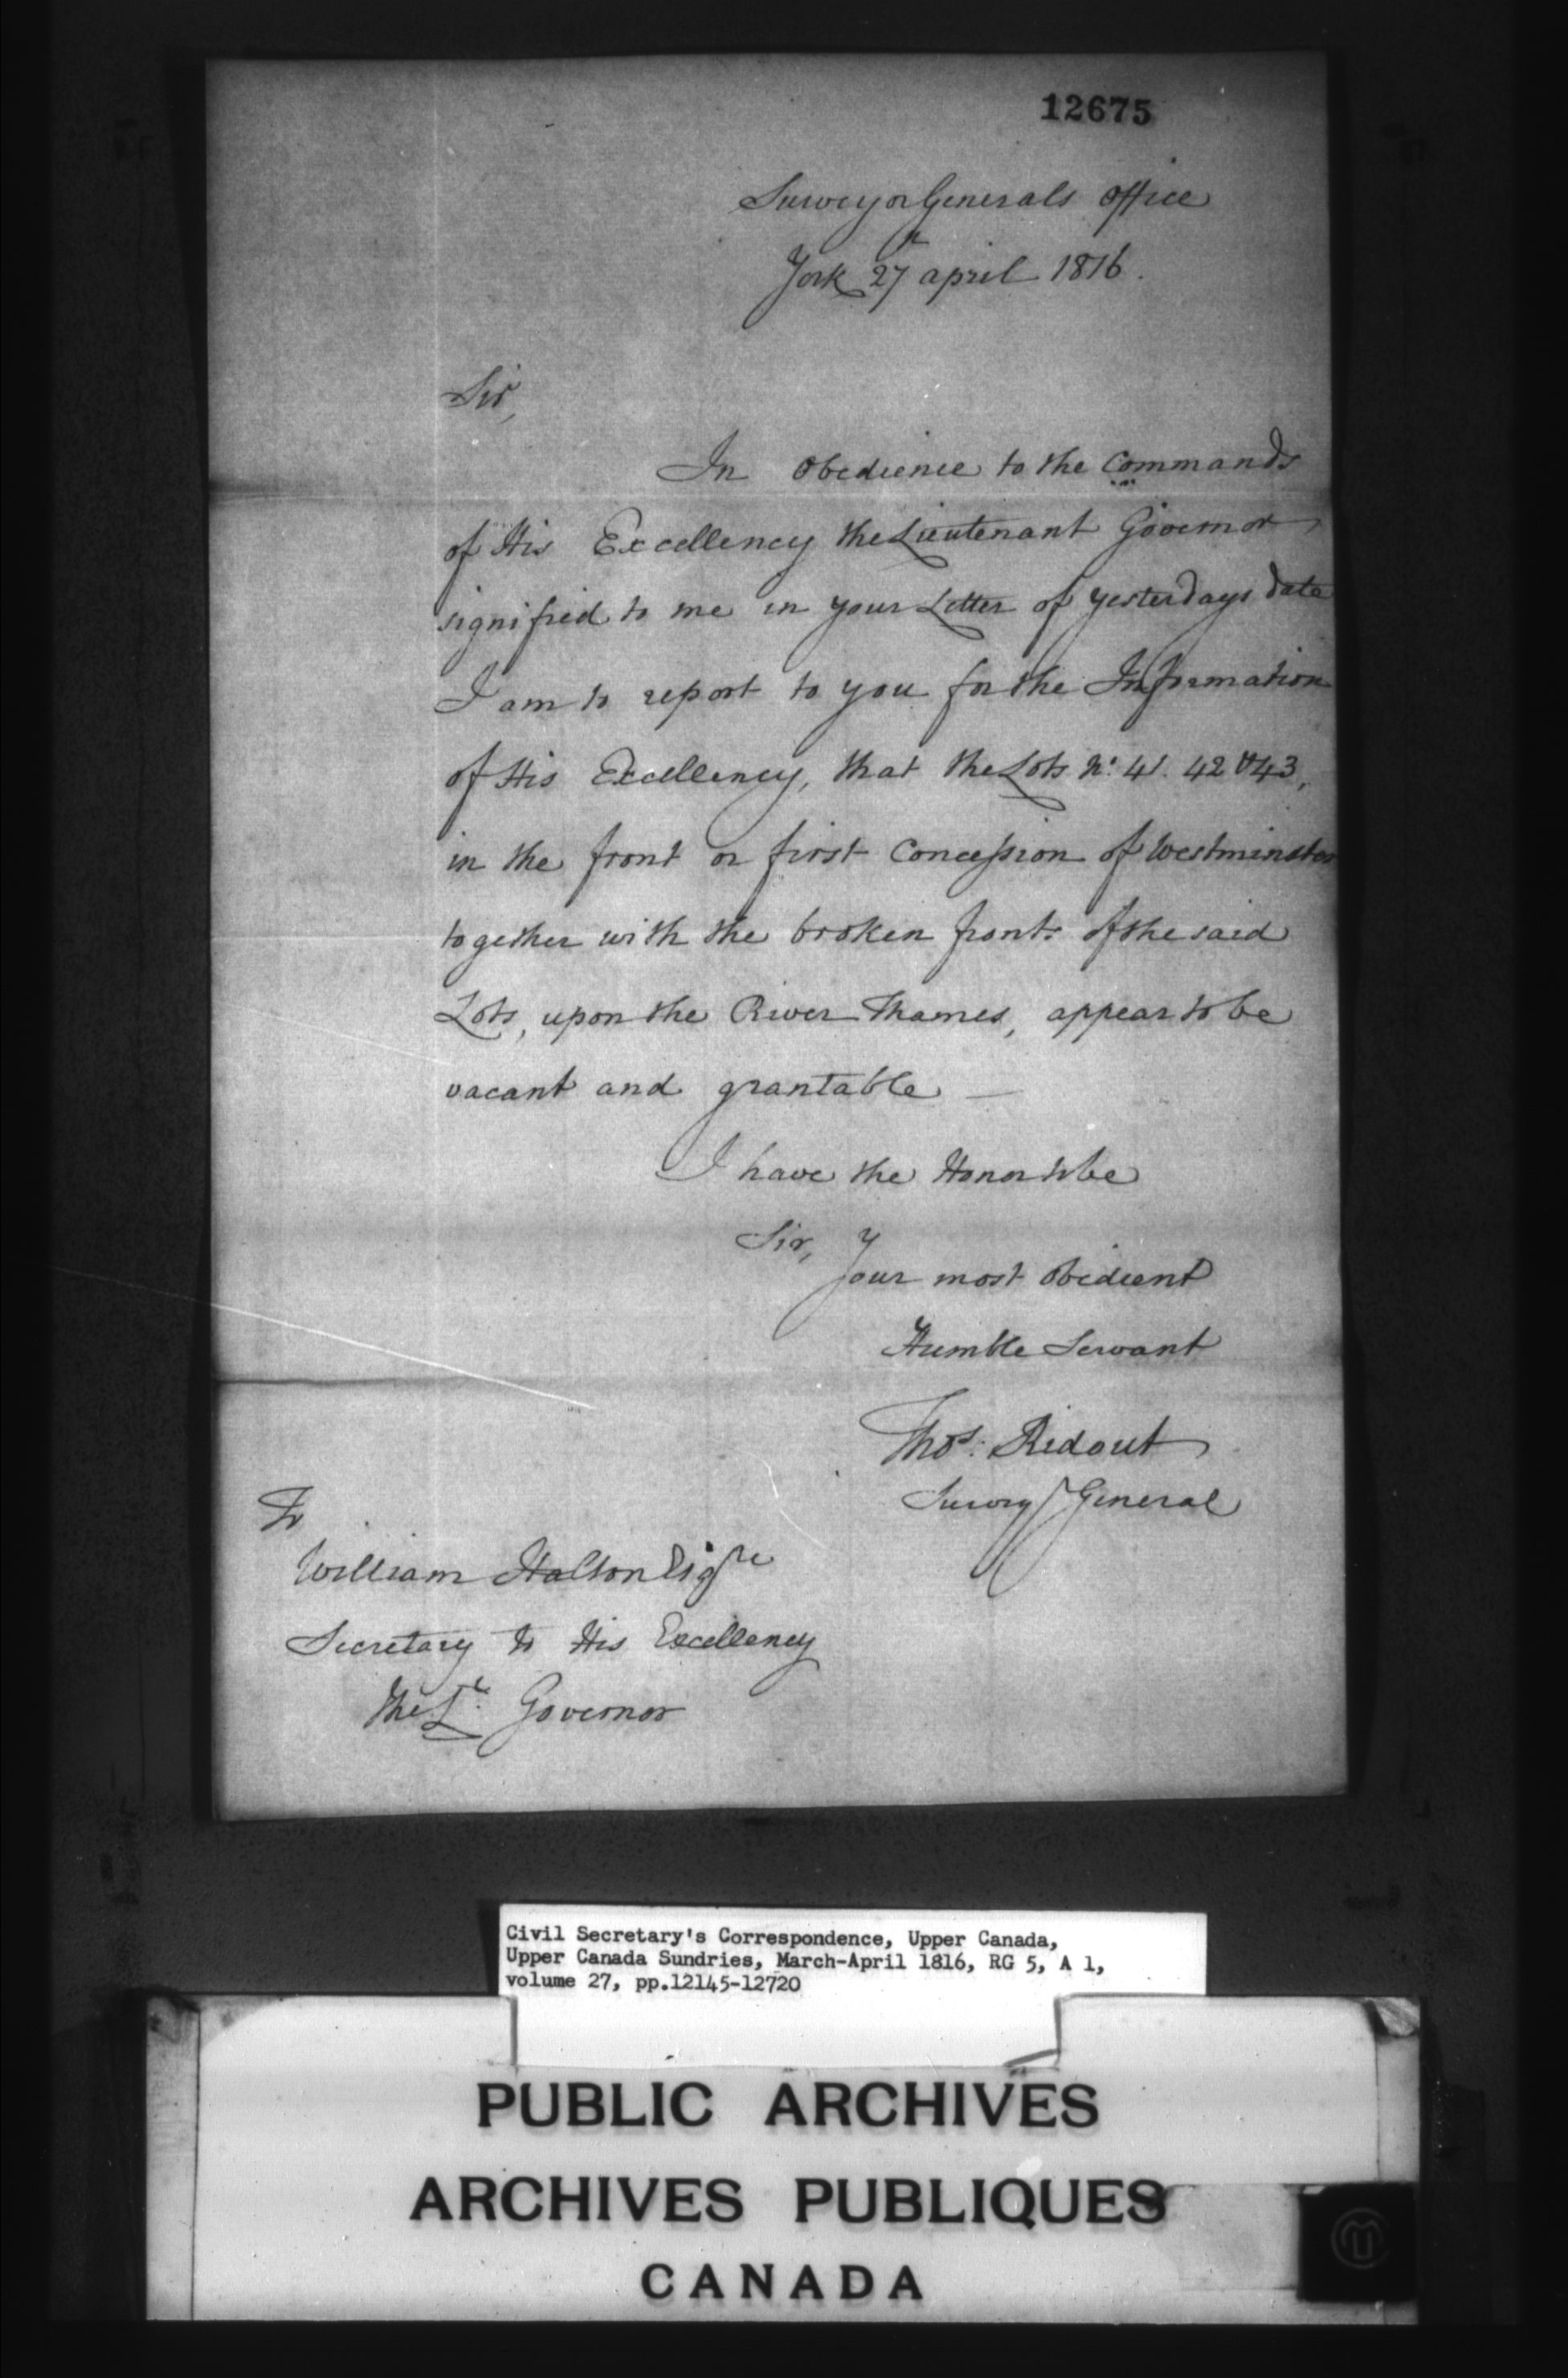 12675
Surveyor Generals Office
York 27th april 1816.
Sir,
In Obedience to the Commands
of His Excellency the Lieutenant Governor,
signified to me in your Letter of yesterdays date
I am to report to you for the Information
of His Excellency, that the Lots No. 41. 42 & 43,
in the front or first Concession of Westminster
together with the broken fronts of the said
Lots, upon the River Thames, appear to be
vacant and grantable —
I have the Honor to be
Sir,
Your most Obedient
Humble Servant
Thos. Ridout
Survyr General
To
William Halton Esqre
Secretary to His Excellency
the Lt. Governor
Civil Secretary's Correspondence, Upper Canada,
Upper Canada Sundries, March-April 1816, RG 5, A 1,
volume 27, pp.12145-12720
PUBLIC ARCHIVES
ARCHIVES PUBLIQUES
CANADA